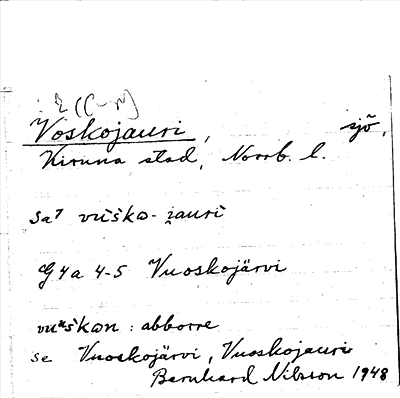 Voskojauri, sjö,
Kiruna stad, Norrb. l.
Sa⁷ vu̇ško-i̯auri
G4a 4-5 Vuoskojärvi
vuᵒškon : abborre
se Vuoskojärvi, Vuoskojauri
Bernhard Nilsson 1948